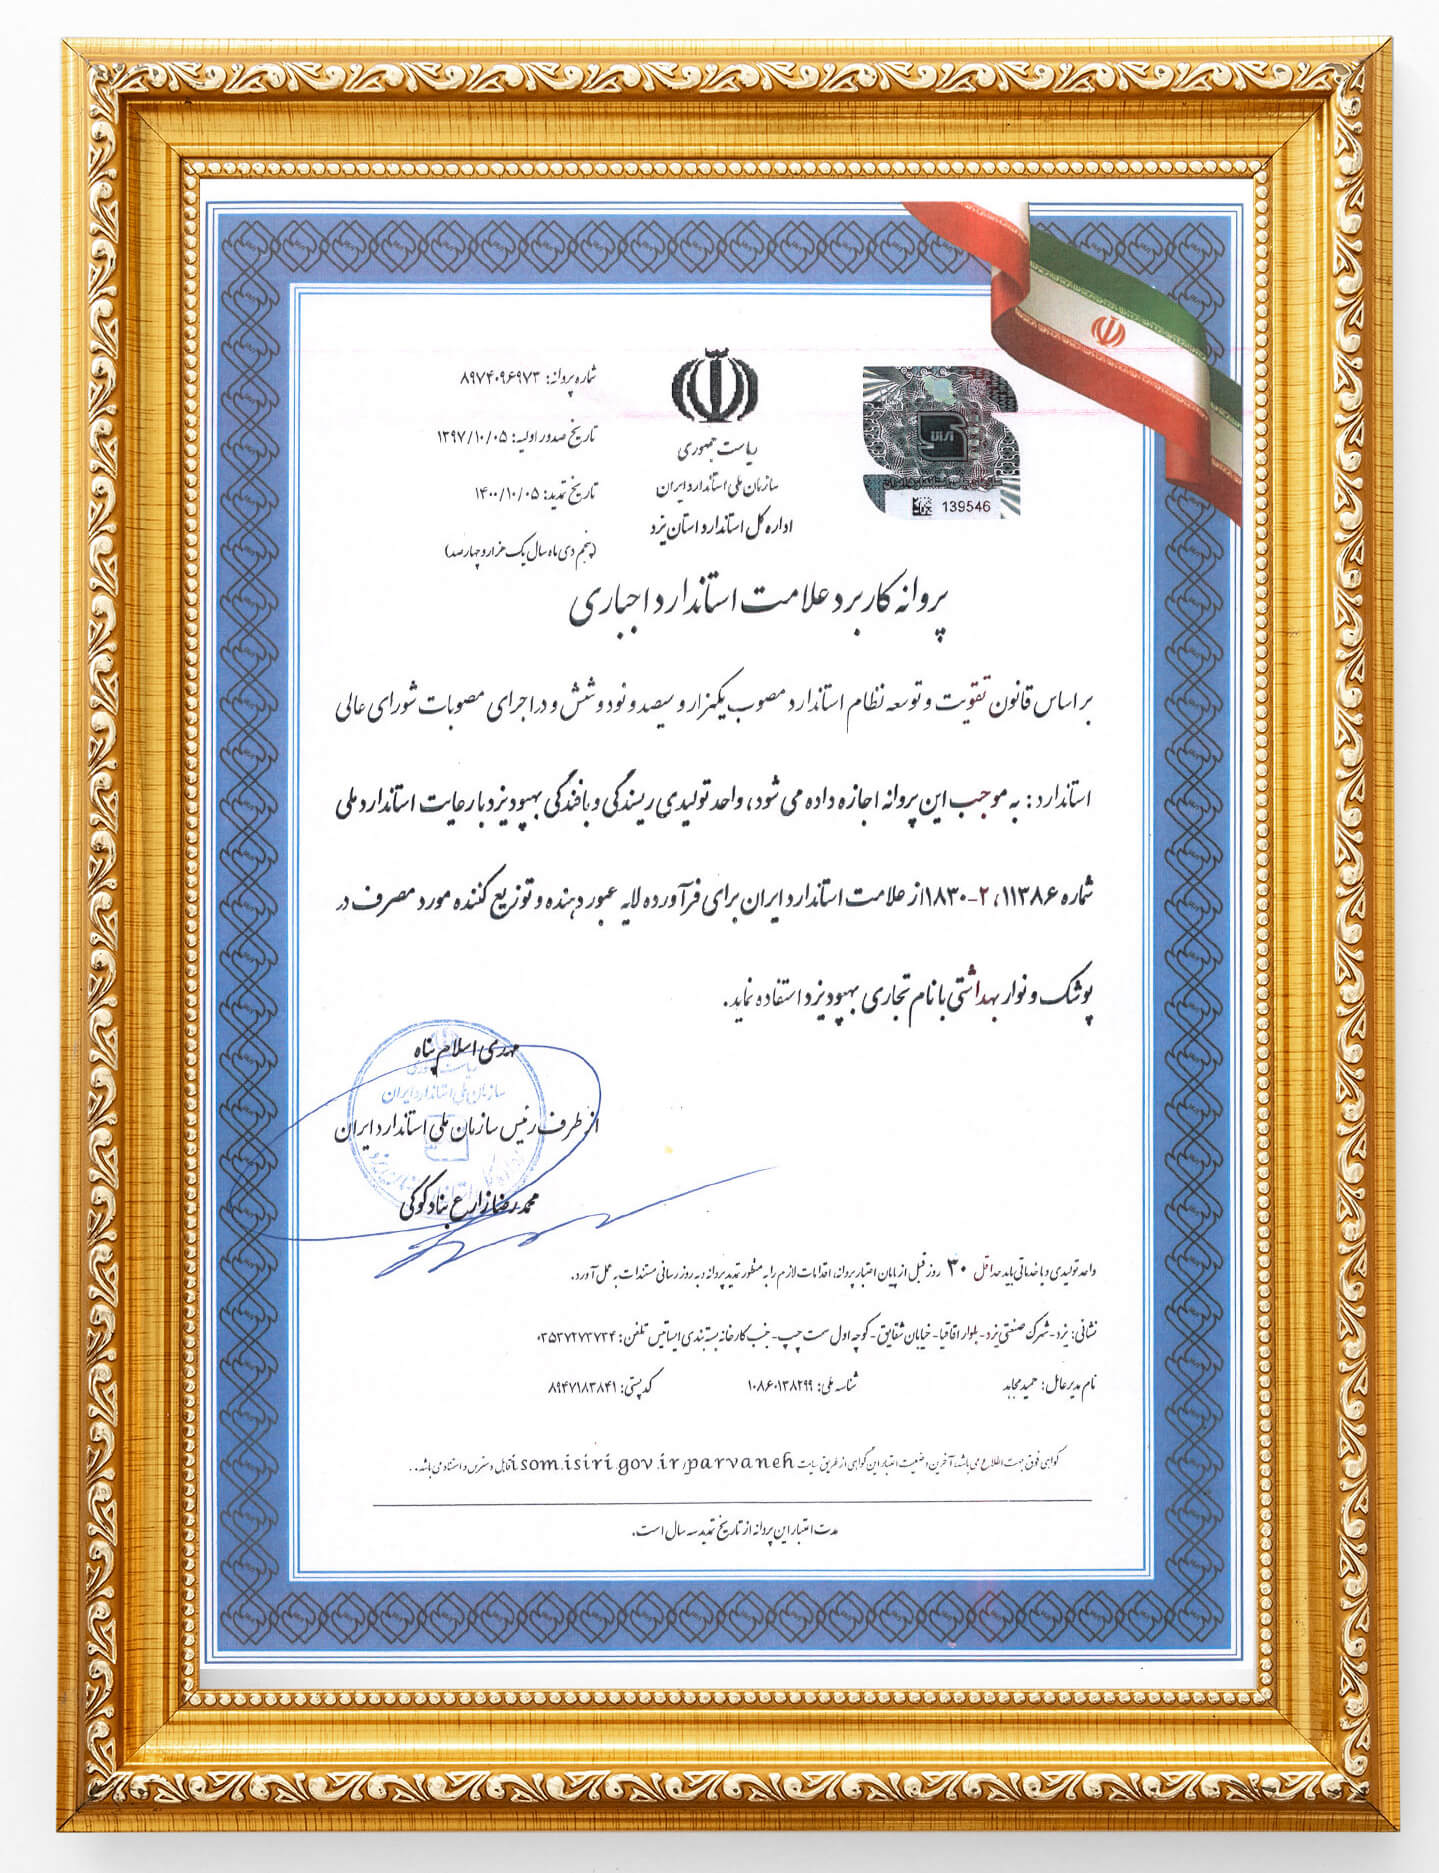 شماره پروانه: ۸۹۷۴۰۹۶۹۷۳
تاریخ صدور اولیه: ۱۳۹۷/۱۰/۰۵
تاریخ تمدید: ۱۴۰۰/۱۰/۰۵
(پنجم دی ماه سال یک هزار و چهارصد)
ریاست جمهوری
سازمان ملی استاندارد ایران
اداره کل استاندارد استان یزد
139546
پروانه کاربرد علامت استاندارد اجباری
بر اساس قانون تقویت و توسعه نظام استاندارد مصوب یکهزار و سیصد و نود و شش و در اجرای مصوبات شورای عالی
استاندارد: به موجب این پروانه اجازه داده می شود، واحد تولیدی ریسندگی و بافندگی بهبود یزد با رعایت استاندارد ملی
شماره ۱۱۳۸۶، ۲-۱۸۳۰ از علامت استاندارد ایران برای فرآورده لایه عبور دهنده و توزیع کننده مورد مصرف در
پوشک و نوار بهداشتی با نام تجاری بهبود یزد استفاده نماید.
مهدی اسلام پناه
از طرف رئیس سازمان ملی استاندارد ایران
محمدرضا زارع بنادکوکی
ریاست جمهوری
سازمان ملی استاندارد ایران
واحد تولیدی و یا خدماتی باید حداقل ۳۰ روز قبل از پایان اعتبار پروانه، اقدامات لازم را به منظور تمدید پروانه و به روز رسانی مستندات به عمل آورد.
نشانی: یزد - شهرک صنعتی یزد - بلوار اقاقیا - خیابان شقایق - کوچه اول سمت چپ - جنب کارخانه بسته بندی ایساتیس تلفن: ۰۳۵۳۷۲۷۳۷۳۴
نام مدیر عامل: حمید مجاهد شناسه ملی: ۱۰۸۶۰۱۳۸۲۹۹ کد پستی: ۸۹۴۷۱۸۳۸۴۱
گواهی فوق جهت اطلاع می باشد، آخرین وضعیت اعتبار این گواهی از طریق سایت isom.isiri.gov.ir/parvaneh قابل دسترس و استناد می باشد..
مدت اعتبار این پروانه از تاریخ تمدید سه سال است.